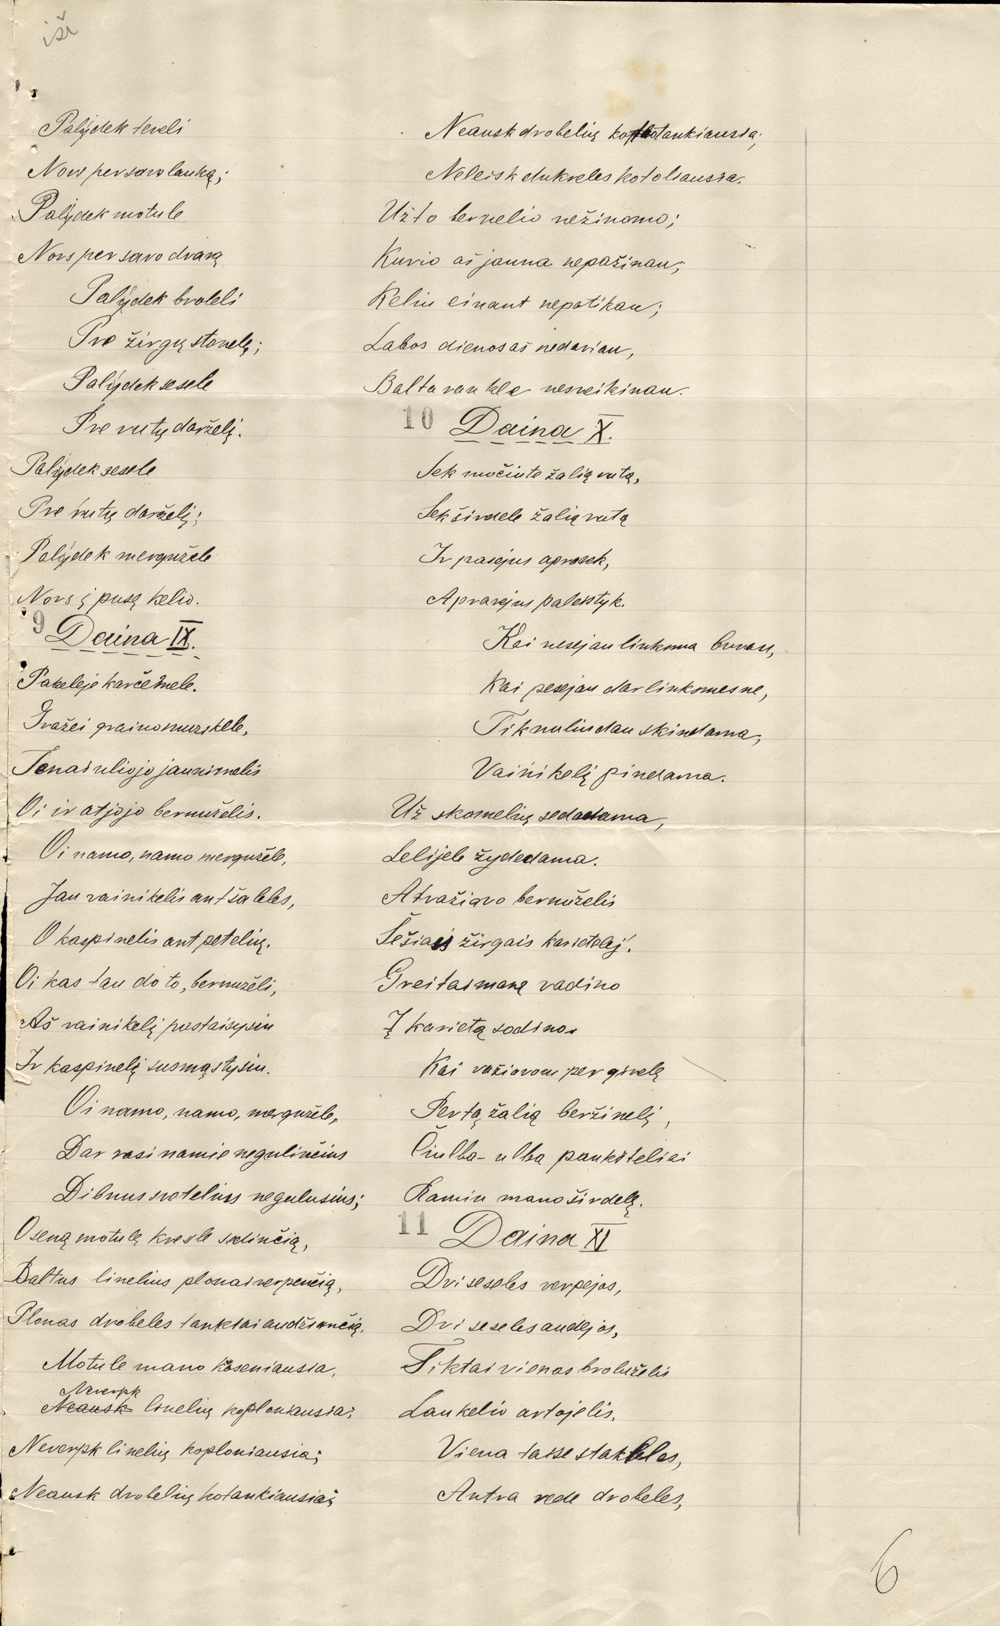 iši
Palýdek teveli
Nors per savo lauką;
Palýdek motule
Nors per savo dvarą
Palýdek broleli
Pre žirgų stonelę;
Palýdek sesele
Pre rutų darželį.
Palýdek sesele
Pre rutų darželį;
Palýdek mergužele
Nors į pusę kelio.
9 Daina IX.
Pakeleje karčemele.
Gražei graino muzikele,
Tenai uliojo jaunimelis
Oi ir atjojo bernužėlis.
Oi namo, namo mergužėle,
Jau vainikelis ant šaleles,
O kaspinelis ant petelių.
Oi kas tau do to, bernuželi,
Aš vainikelį pastaisysiu
Ir kaspinelį susmąstysiu.
Oi namo, namo, mergužele,
Dar rasi namie negulinčius
Dibnus svotelius negulusius;
O seną motulę kresle sedinčią,
Baltus linelius plonai verpenčią,
Plonas drobeles tanktai audžiančią.
Motule mano koseniausia,
Neverpk
Neausk linelių koploniausia;
Neverpk linelių koploniausia;
Neausk drobelių kotankiausiai;
Neausk drobelių kotankiausia;
Neleisk dukreles kotoliausia.
Už to bernelio nežinomo;
Kurio aš jauna nepažinau;
Keliu einant nepatikau;
Labos dienos aš nedaviau,
Balta rankle nesveikinau.
10 Daina X.
Sek močiute žalią rutą,
Sek širdele žalią rutą
Ir pasejus apravek,
Apravejus palestyk.
Kai nesejau linksma buvau,
Kai pesejau dar linksmesne,
Tik nuliudau skindama,
Vainikelį pindama.
Už skomelių sedadama,
Lelijele žydedama.
Atvažiavo bernužėlis
Šešiais žirgais karietelėj.
Greitai manę vadino
Į karietą sodino.
Kai važiavom per girelę
Per tą žalią beržinelį,
Čiulba-ulba paukšteliai
Ramin mano širdelę.
11 Daina XI
Dvi seseles verpejos,
Dvi seseles audėjos,
Tiktai vienas brolužėlis
Laukelio artojelis.
Viena taise stakleles,
Antra rede drobeles,
6